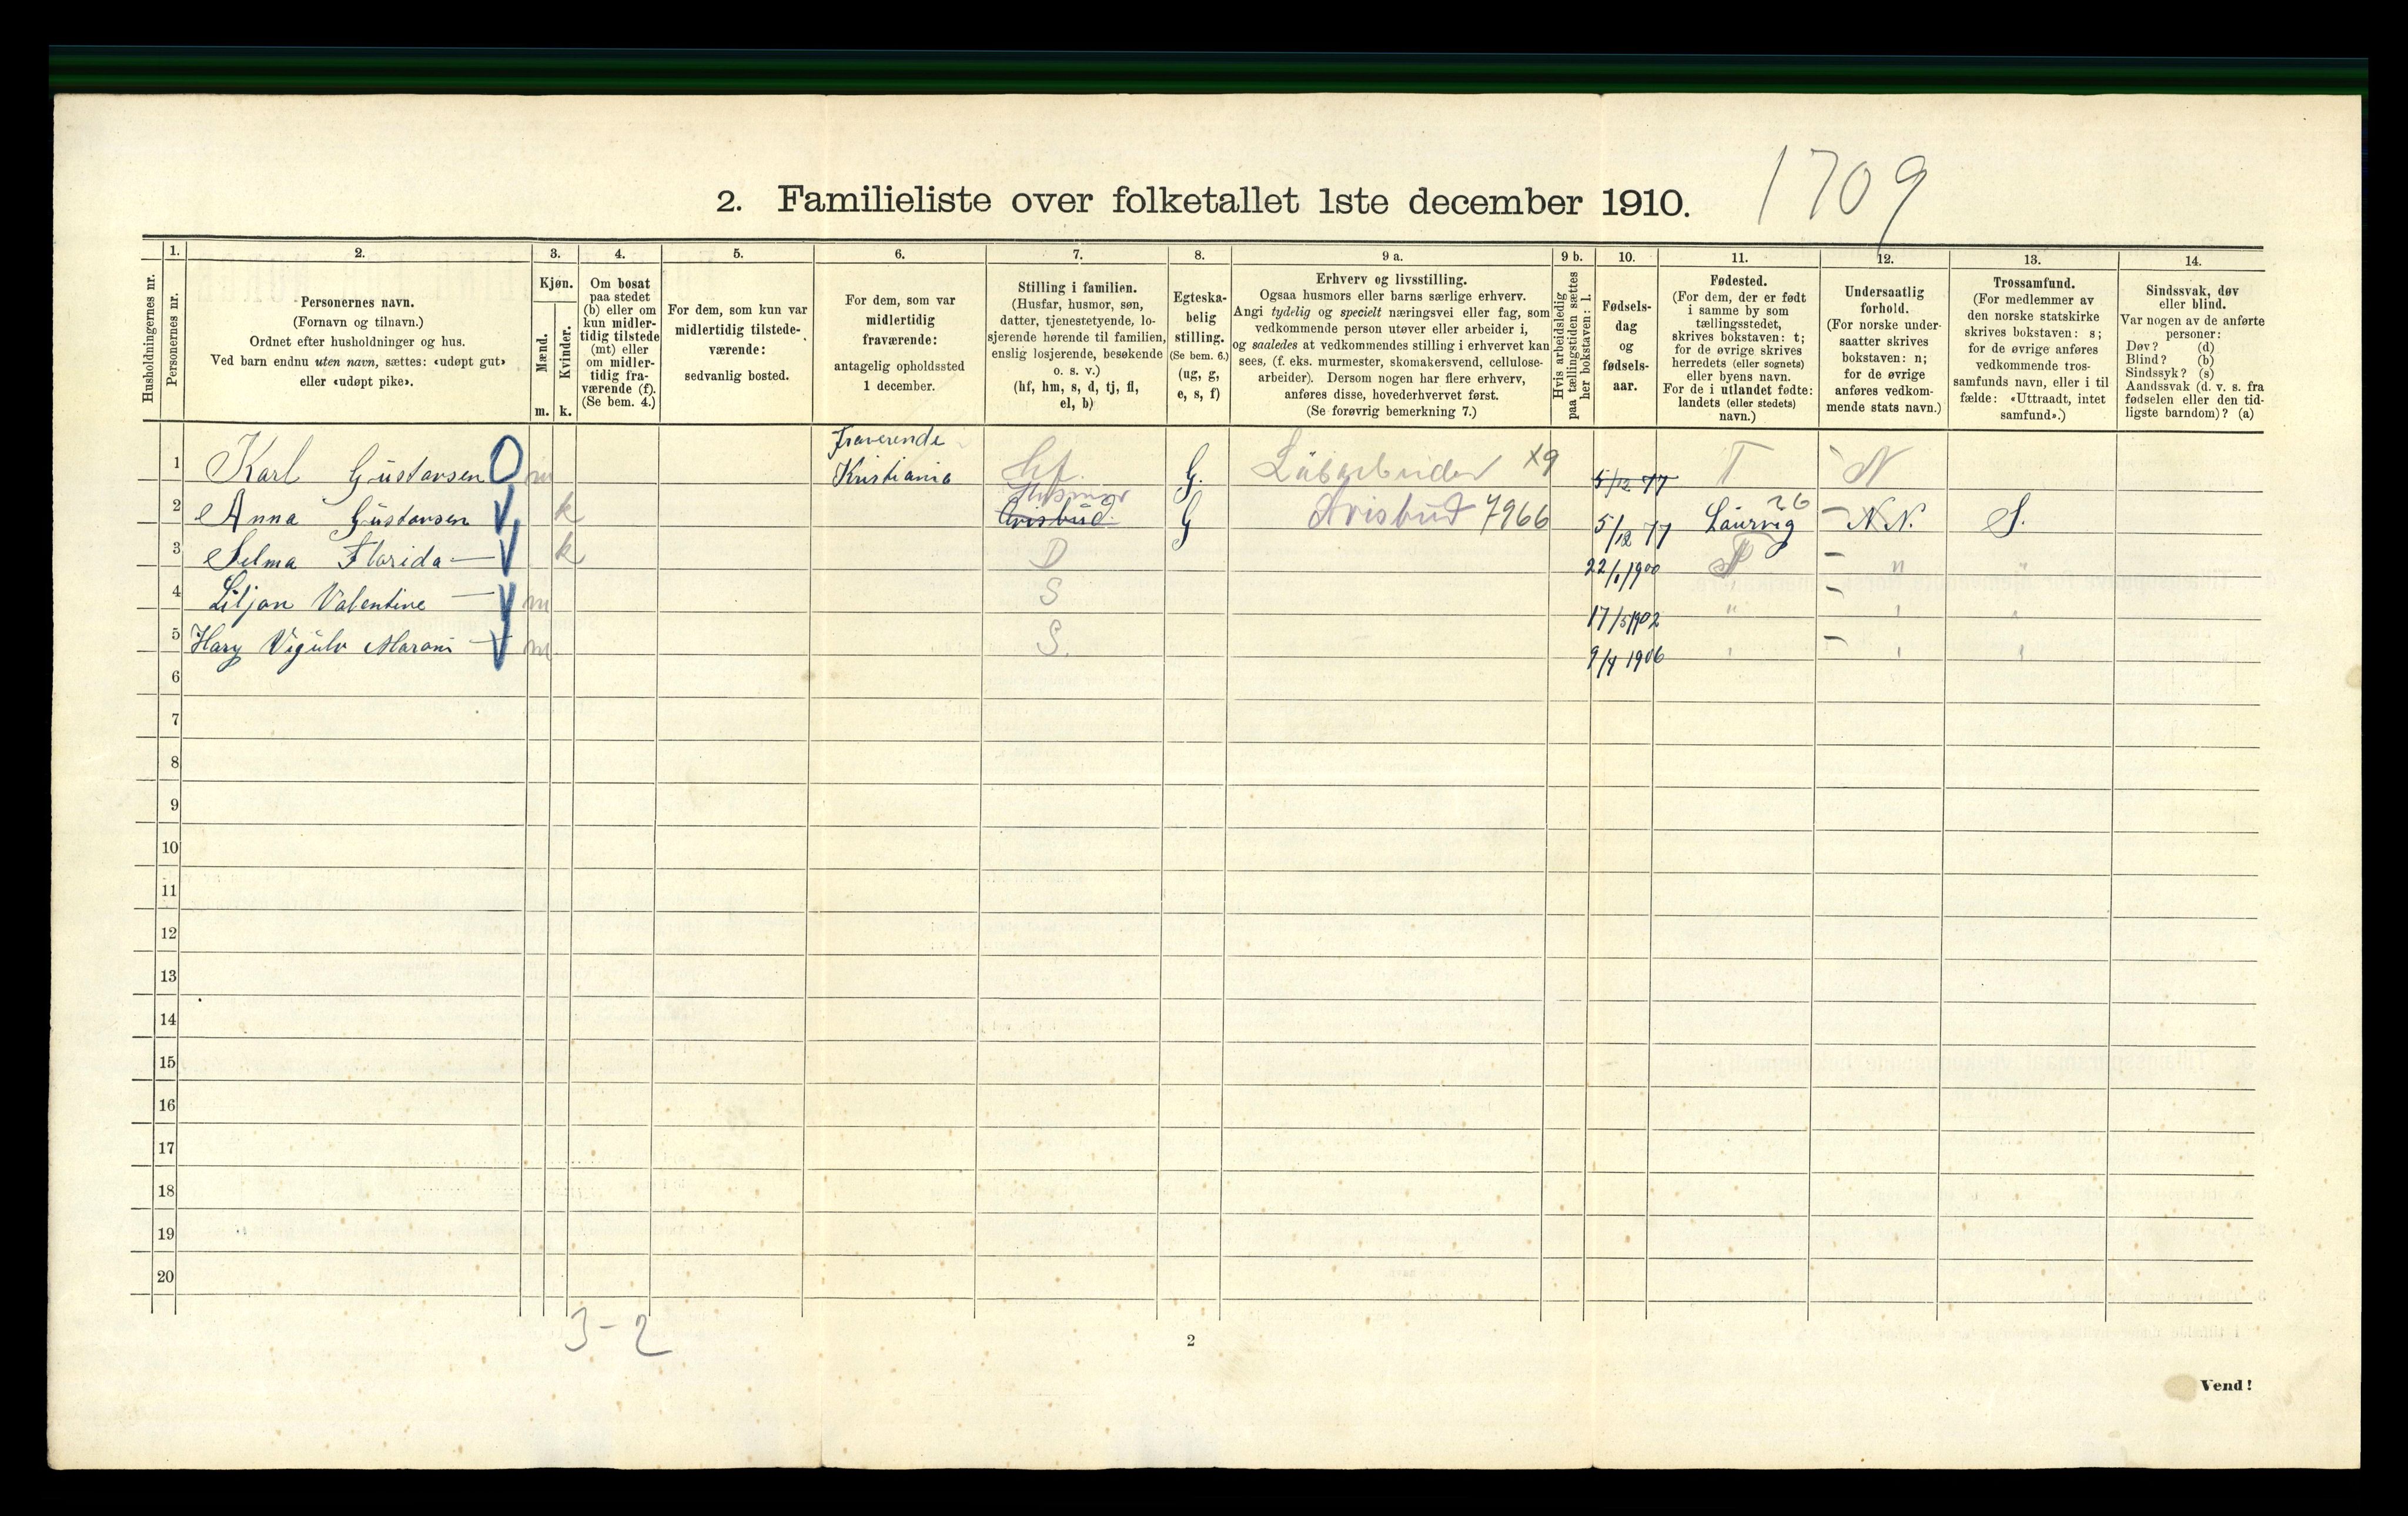 1709
2. Familieliste over folketallet 1ste december 1910.
Husholdningernes nr.
1.
Personernes nr.
2.
Personernes navn.
(Fornavn og tilnavn.)
Ordnet efter husholdninger og hus.
Ved barn endnu uten navn, sættes: «udøpt gut»
eller «udøpt pike».
3.
Kjøn.
Mænd.
Kvinder.
m. k.
4.
Om bosat
paa stedet
(b) eller om
kun midler-
tidig tilstede
(mt) eller
om midler-
tidig fra-
værende (f).
(Se bem. 4.)
5.
For dem, som kun var
midlertidig tilstede-
værende:
sedvanlig bosted.
6.
For dem, som var
midlertidig
fraværende:
antagelig opholdssted
1 december.
7.
Stilling i familien.
(Husfar, husmor, søn,
datter, tjenestetyende, lo-
sjerende hørende til familien,
enslig losjerende, besøkende
o. s. v.)
(hf, hm, s, d, tj, fl,
el, b)
8.
Egteska-
belig
stilling.
(Se bem. 6.)
(ug, g,
e, s, f)
9 a.
Erhverv og livsstilling.
Ogsaa husmors eller barns særlige erhverv.
Angi tydelig og specielt næringsvei eller fag, som
vedkommende person utøver eller arbeider i,
og saaledes at vedkommendes stilling i erhvervet kan
sees, (f. eks. murmester, skomakersvend, cellulose-
arbeider). Dersom nogen har flere erhverv,
anføres disse, hovederhvervet først.
(Se forøvrig bemerkning 7.)
9 b.
Hvis arbeidsledig
paa tællingstiden sættes
her bokstaven: l.
10.
Fødsels-
dag
og
fødsels-
aar.
11.
Fødested.
(For dem, der er født
i samme by som
tællingsstedet,
skrives bokstaven: t;
for de øvrige skrives
herredets (eller sognets)
eller byens navn.
For de i utlandet fødte:
landets (eller stedets)
navn.)
12.
Undersaatlig
forhold.
(For norske under-
saatter skrives
bokstaven: n;
for de øvrige
anføres vedkom-
mende stats navn.)
13.
Trossamfund.
(For medlemmer av
den norske statskirke
skrives bokstaven: s;
for de øvrige anføres
vedkommende tros-
samfunds navn, eller i til
fælde: «Uttraadt, intet
samfund».)
14.
Sindssvak, døv
eller blind.
Var nogen av de anførte
personer:
Døv? (d)
Blind? (b)
Sindssyk? (s)
Aandssvak (d. v. s. fra
fødselen eller den tid-
ligste barndom)? (a)
Fraverende
1 Karl Gustavsen O m Kristiania hf. G. Løsarbeider X9 5/12 77 T N
Husmor
2 Anna Gustavsen V k Avisbud G Avisbud 7966 5/12 77 Laurvig 26 N N. S.
3 Selma Florida — V k D 22/1 1900 T " "
4 Liljan Valentine — V m S 17/5 1902 " " "
5 Hary Vigulv Marani — V m S. 9/4 1906 " " "
6
7
8
9
10
11
12
13
14
15
16
17
18
19
20
3-2
2
Vend!